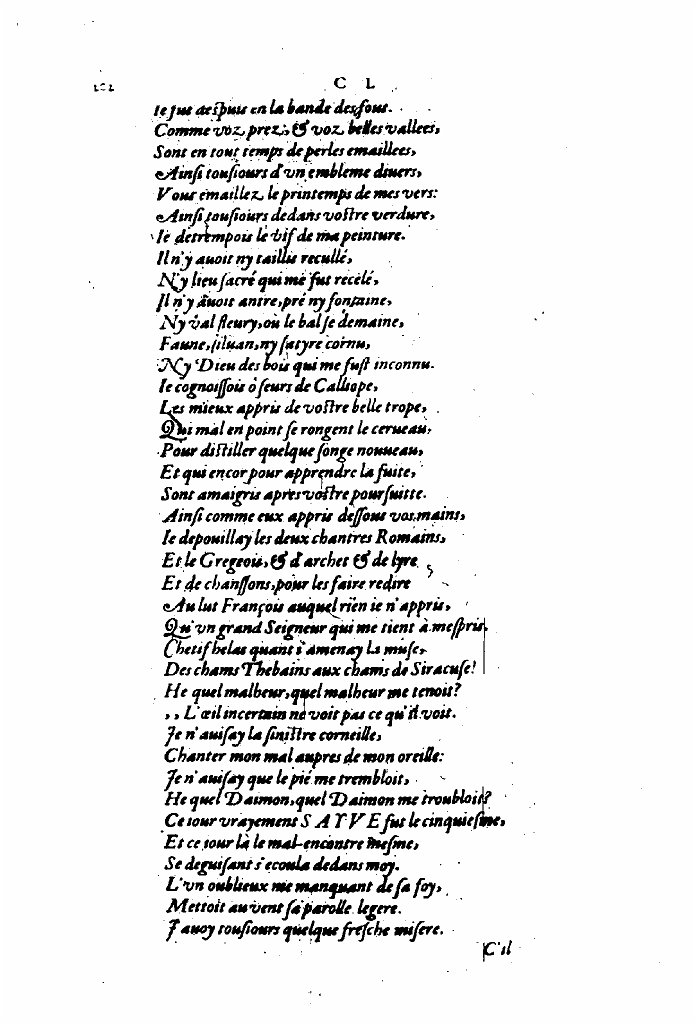 C L
Ie fus despuis en la bande des fous.
Comme voz prez, & voz belles vallees,
Sont en tout temps de perles emaillees,
Ainsi tousiours d'vn embleme diuers,
Vous emaillez le printemps de mes vers:
Ainsi tousiours dedans vostre verdure,
Ie detrempois le vif de ma peinture.
Il n'y auoit ny taillis recullé,
N'y lieu sacré qui me fut recelé,
Il n'y auoit antre, pré ny fontaine,
Ny val fleury, ou le bal se demaine,
Faune, siluan, ny satyre cornu,
Ny Dieu des bois qui me fust inconnu.
Ie cognoissois ô seurs de Calliope,
Les mieux appris de vostre belle trope,
Qui mal en point se rongent le cerueau,
Pour distiller quelque songe nouueau,
Et qui encor pour apprendre la suite,
Sont amaigris apres vostre poursuitte.
Ainsi comme eux appris dessous vos mains,
Ie depouillay les deux chantres Romains,
Et le Gregeois, & d'archet & de lyre,
Et de chanssons, pour les faire redire
Au lut François auquel rien ie n'appris,
Qu'vn grand Seigneur qui me tient à mespris.
Chetif helas quant i'amenay la muse,
Des chams Thebains aux chams de Siracuse!
He quel malheur, quel malheur me tenoit?
,, L'œil incertain ne voit pas ce qu'il voit.
Je n'auisay la sinistre corneille,
Chanter mon mal aupres de mon oreille:
Je n'auisay que le pié me trembloit,
He quel Daimon, quel Daimon me troubloit?
Ce iour vrayement SATVE fut le cinquiesme,
Et ce iour là le mal-encontre mesme,
Se deguisant s'ecoula dedans moy.
L'vn oublieux me manquant de sa foy,
Mettoit au vent sa parolle legere.
J'auoy tousiours quelque fresche misere.
C'il